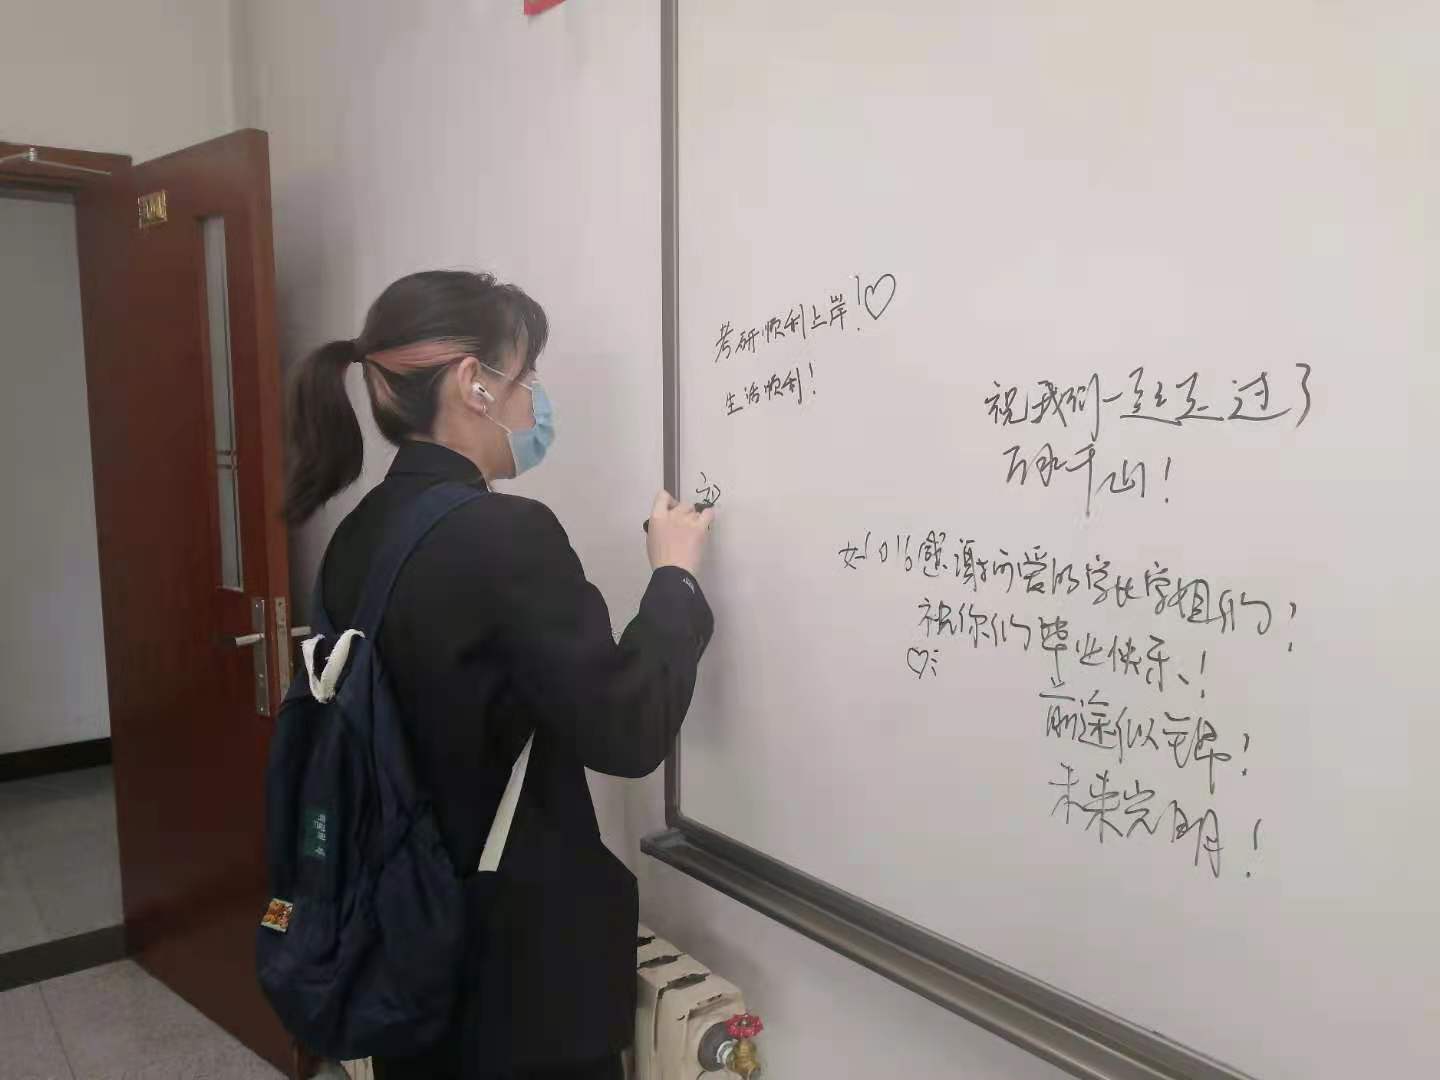 考研顺利上岸!♡
生活顺利!
祝我们一起走过了
万水千山!
感谢可爱的学长学姐们!
祝你们毕业快乐!
♡
前途似锦!
未来光明!